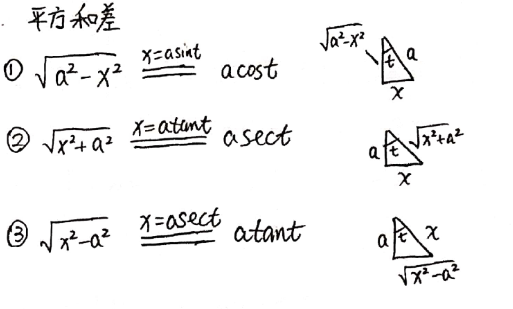 平方和差
① √(a²-x²) x=asint acost √(a²-x²) t a x
② √(x²+a²) x=atant asect a t √(x²+a²) x
③ √(x²-a²) x=asect atant a t x √(x²-a²)